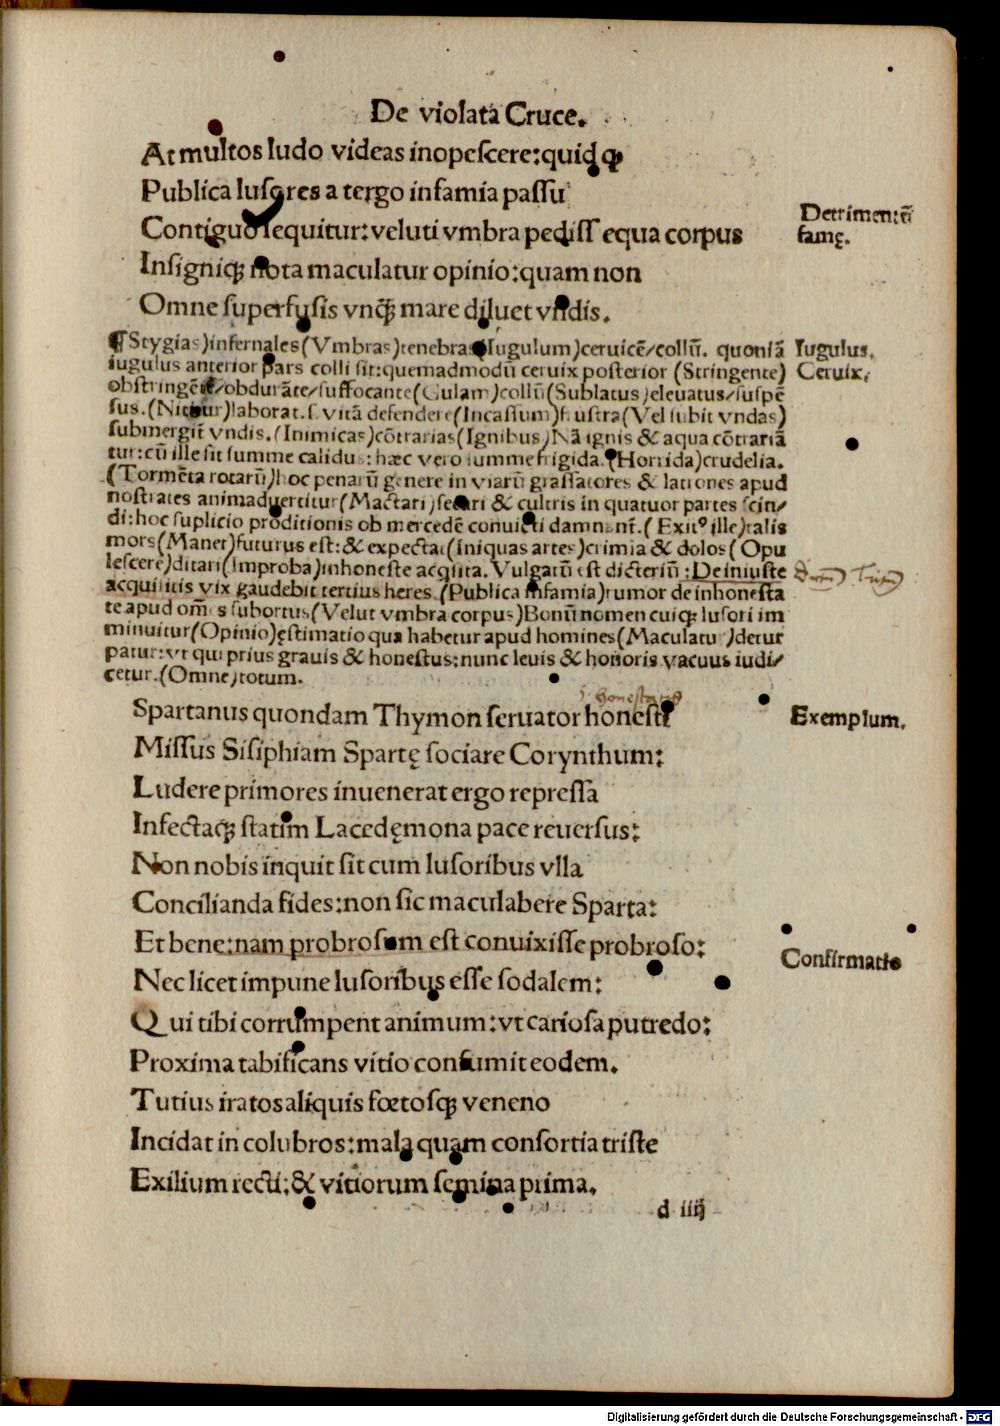 De violata Cruce.
At multos ludo videas inopescere: quid qȝ
Publica lusores a tergo infamia passu
Contiguo sequitur: veluti vmbra pedissequa corpus
Detrimentū
famę.
Insigniqȝ nota maculatur opinio: quam non
Omne superfusis vnq̄ȝ mare diluet vndis.
¶ Stygias) infernales (Vmbras) tenebras (Iugulum) ceruicē/collū. quoniā
Iugulus.
iugulus anterior pars colli sit: quemadmodū ceruix posterior (Stringente)
Ceruix.
obstringēte/obdurāte/suffocante (Gulam) collū (Sublatus) eleuatus/suspē
sus. (Nititur) laborat. s. vitā defendere (Incassum) frustra (Vel subit vndas)
submergit̄ vndis. (Inimicas) cōtrarias (Ignibus) Nā ignis & aqua cōtrariā
tur: cū ille sit summe calidus: hæc vero summe frigida. (Horrida) crudelia.
(Tormēta rotarū) hoc penarū genere in viarū grassatores & latrones apud
nostrates animaduertitur (Mactari) secari & cultris in quatuor partes scin/
di: hoc suplicio proditionis ob mercedē conuicti damnant̄. (Exitꝰ ille) talis
mors (Manet) futurus est: & expectat (iniquas artes) crimia & dolos (Opu
lescere) ditari (improba) inhoneste acq̄sita. Vulgatū est dicteriū: De iniuste
acquisitis vix gaudebit tertius heres. (Publica infamia) rumor de inhonesta
te apud omēs subortus (Velut vmbra corpus) Bonū nomen cuiqȝ lusori im
minuitur (Opinio) ęstimatio qua habetur apud homines (Maculatur) detur
patur: vt qui prius grauis & honestus: nunc leuis & honoris vacuus iudi/
cetur. (Omne) totum.
honestatis
Spartanus quondam Thymon seruator honesti
Exemplum.
Missus Sisiphiam Spartę sociare Corynthum:
Ludere primores inuenerat ergo repressa
Infectaqȝ statim Lacedęmona pace reuersus:
Non nobis inquit sit cum lusoribus vlla
Concilianda fides: non sic maculabere Sparta:
Et bene: nam probrosum est conuixisse probroso:
Confirmatio
Nec licet impune lusoribus esse sodalem:
Qui tibi corrumpent animum: vt cariosa putredo:
Proxima tabificans vitio consumit eodem.
Tutius iratos aliquis fœtosqȝ veneno
Incidat in colubros: mala quam consortia triste
Exilium recti: & vitiorum semina prima.
d iiij
Digitalisierung gefördert durch die Deutsche Forschungsgemeinschaft - DFG